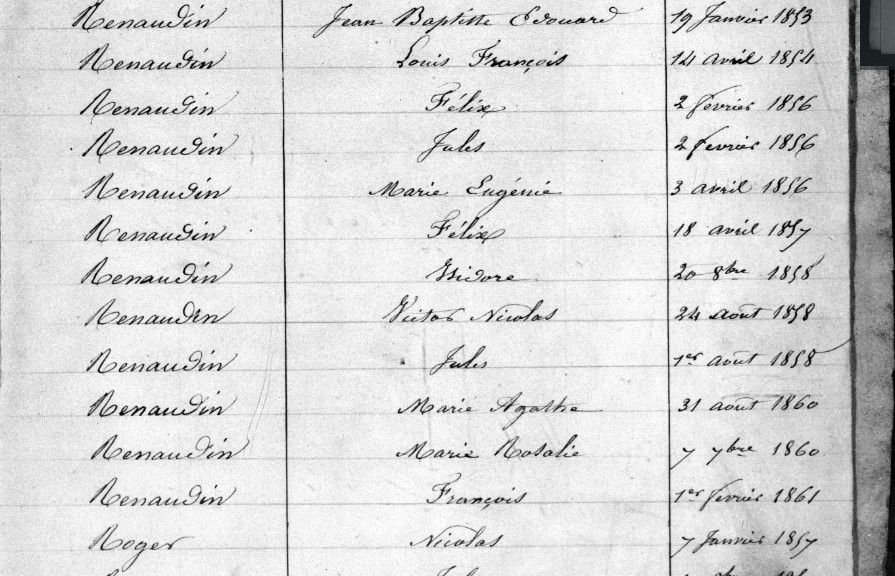 Renaudin Jean Baptiste Edouard 19 Janvier 1853
Renaudin Louis François 14 avril 1854
Renaudin Félix 2 février 1856
Renaudin Jules 2 fevrier 1856
Renaudin Marie Eugénie 3 avril 1856
Renaudin Félix 18 avril 1857
Renaudin Isidore 20 8bre 1858
Renaudin Victor Nicolas 24 août 1858
Renaudin Jules 1er août 1858
Renaudin Marie Agathe 31 août 1860
Renaudin Marie Rosalie 7 7bre 1860
Renaudin François 1er février 1861
Roger Nicolas 7 Janvier 1857